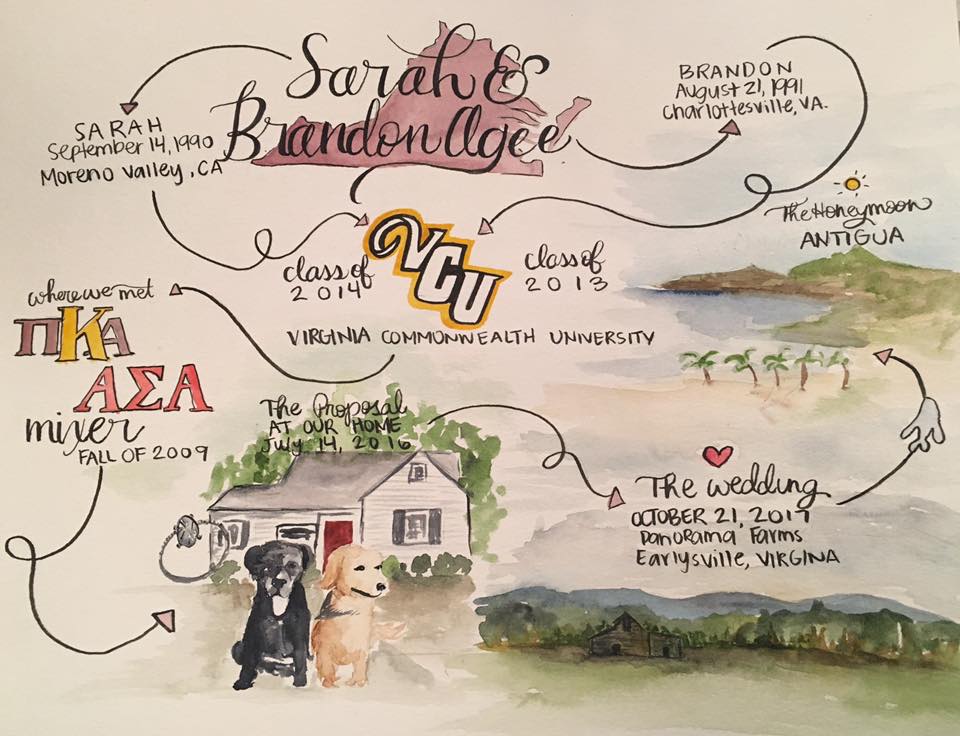 Sarah &
Brandon Agee
SARAH
September 14, 1990
Moreno Valley, CA
BRANDON
August 21, 1991
Charlottesville, VA.
VCU
class of
2014
class of
2013
VIRGINIA COMMONWEALTH UNIVERSITY
where we met
ΠΚΑ
ΑΣΑ
mixer
FALL OF 2009
The Proposal
AT OUR HOME
July 14, 2016
The wedding
OCTOBER 21, 2017
Panorama Farms
Earlysville, VIRGINA
The Honeymoon
ANTIGUA